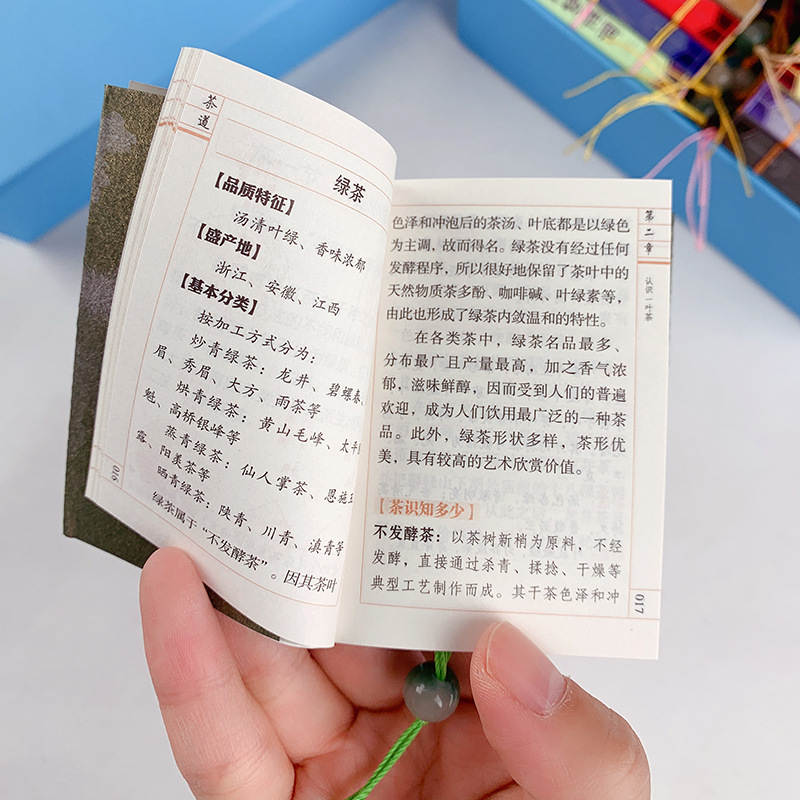 茶道
绿茶
【品质特征】
汤清叶绿、香味浓郁
【盛产地】
浙江、安徽、江西
【基本分类】
按加工方式分为：
炒青绿茶：龙井、碧螺春、
眉、秀眉、大方、雨茶等
烘青绿茶：黄山毛峰、太平
魁、高桥银峰等
蒸青绿茶：仙人掌茶、恩施玉
露、阳羡茶等
晒青绿茶：陕青、川青、滇青等
绿茶属于“不发酵茶”。因其茶叶
016
色泽和冲泡后的茶汤、叶底都是以绿色
为主调，故而得名。绿茶没有经过任何
发酵程序，所以很好地保留了茶叶中的
天然物质茶多酚、咖啡碱、叶绿素等，
由此也形成了绿茶内敛温和的特性。
在各类茶中，绿茶名品最多、
分布最广且产量最高，加之香气浓
郁，滋味鲜醇，因而受到人们的普遍
欢迎，成为人们饮用最广泛的一种茶
品。此外，绿茶形状多样，茶形优
美，具有较高的艺术欣赏价值。
【茶识知多少】
不发酵茶：以茶树新梢为原料，不经
发酵，直接通过杀青、揉捻、干燥等
典型工艺制作而成。其干茶色泽和冲
第二章
认识一叶茶
017